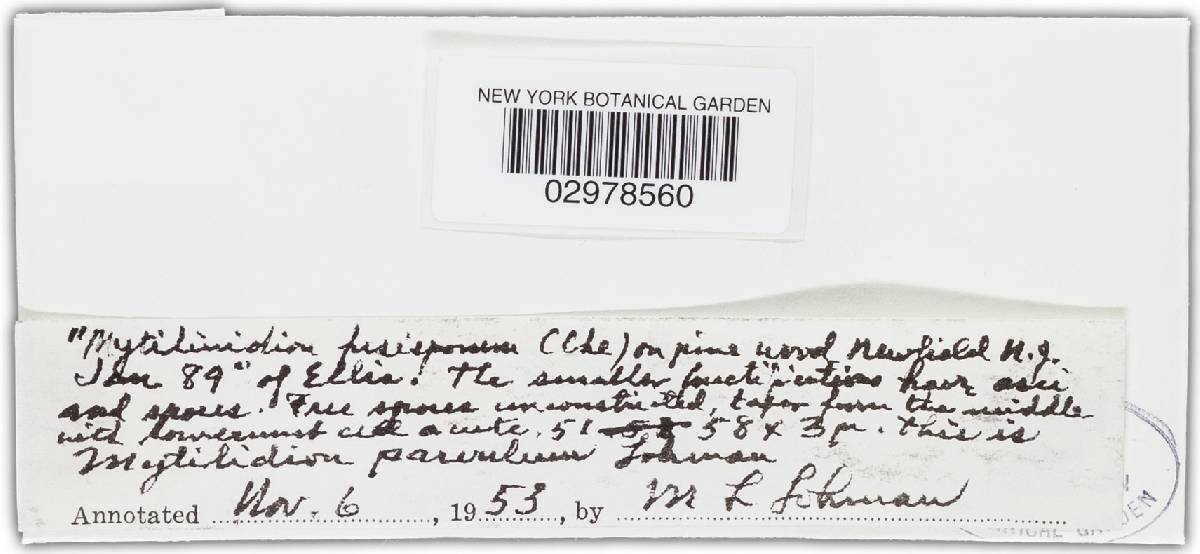 NEW YORK BOTANICAL GARDEN
02978560
"Mytilinidion fusisporum (Cke) on pine wood Newfield N.J.
Jan 89" of Ellis. The smaller fructifications have asci
and spores. Free spores unconstricted, taper from the middle
with lowermost cell acute. 51 58 x 3 µ. This is
Mytilidion parvulum Lohman
Annotated Nov. 6, 1953, by M L Lohman